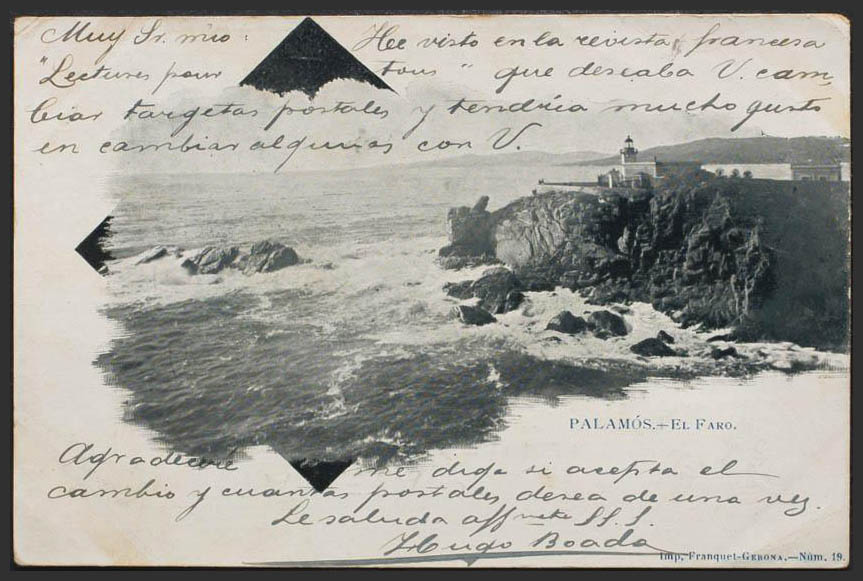 Muy Sr. mio: Hee visto en la revista francesa
"Lectures pour tous" que deseaba V. cam,
biar targetas postales y tendria mucho gusto
en cambiar algunas con V.
PALAMÓS.—EL FARO.
Agradeceré me diga si acepta el
cambio y cuantas postales desea de una vez.
Le saluda aff mte SS.S.
Hugo Boada
Imp. Franquet-GERONA.—Núm. 19.